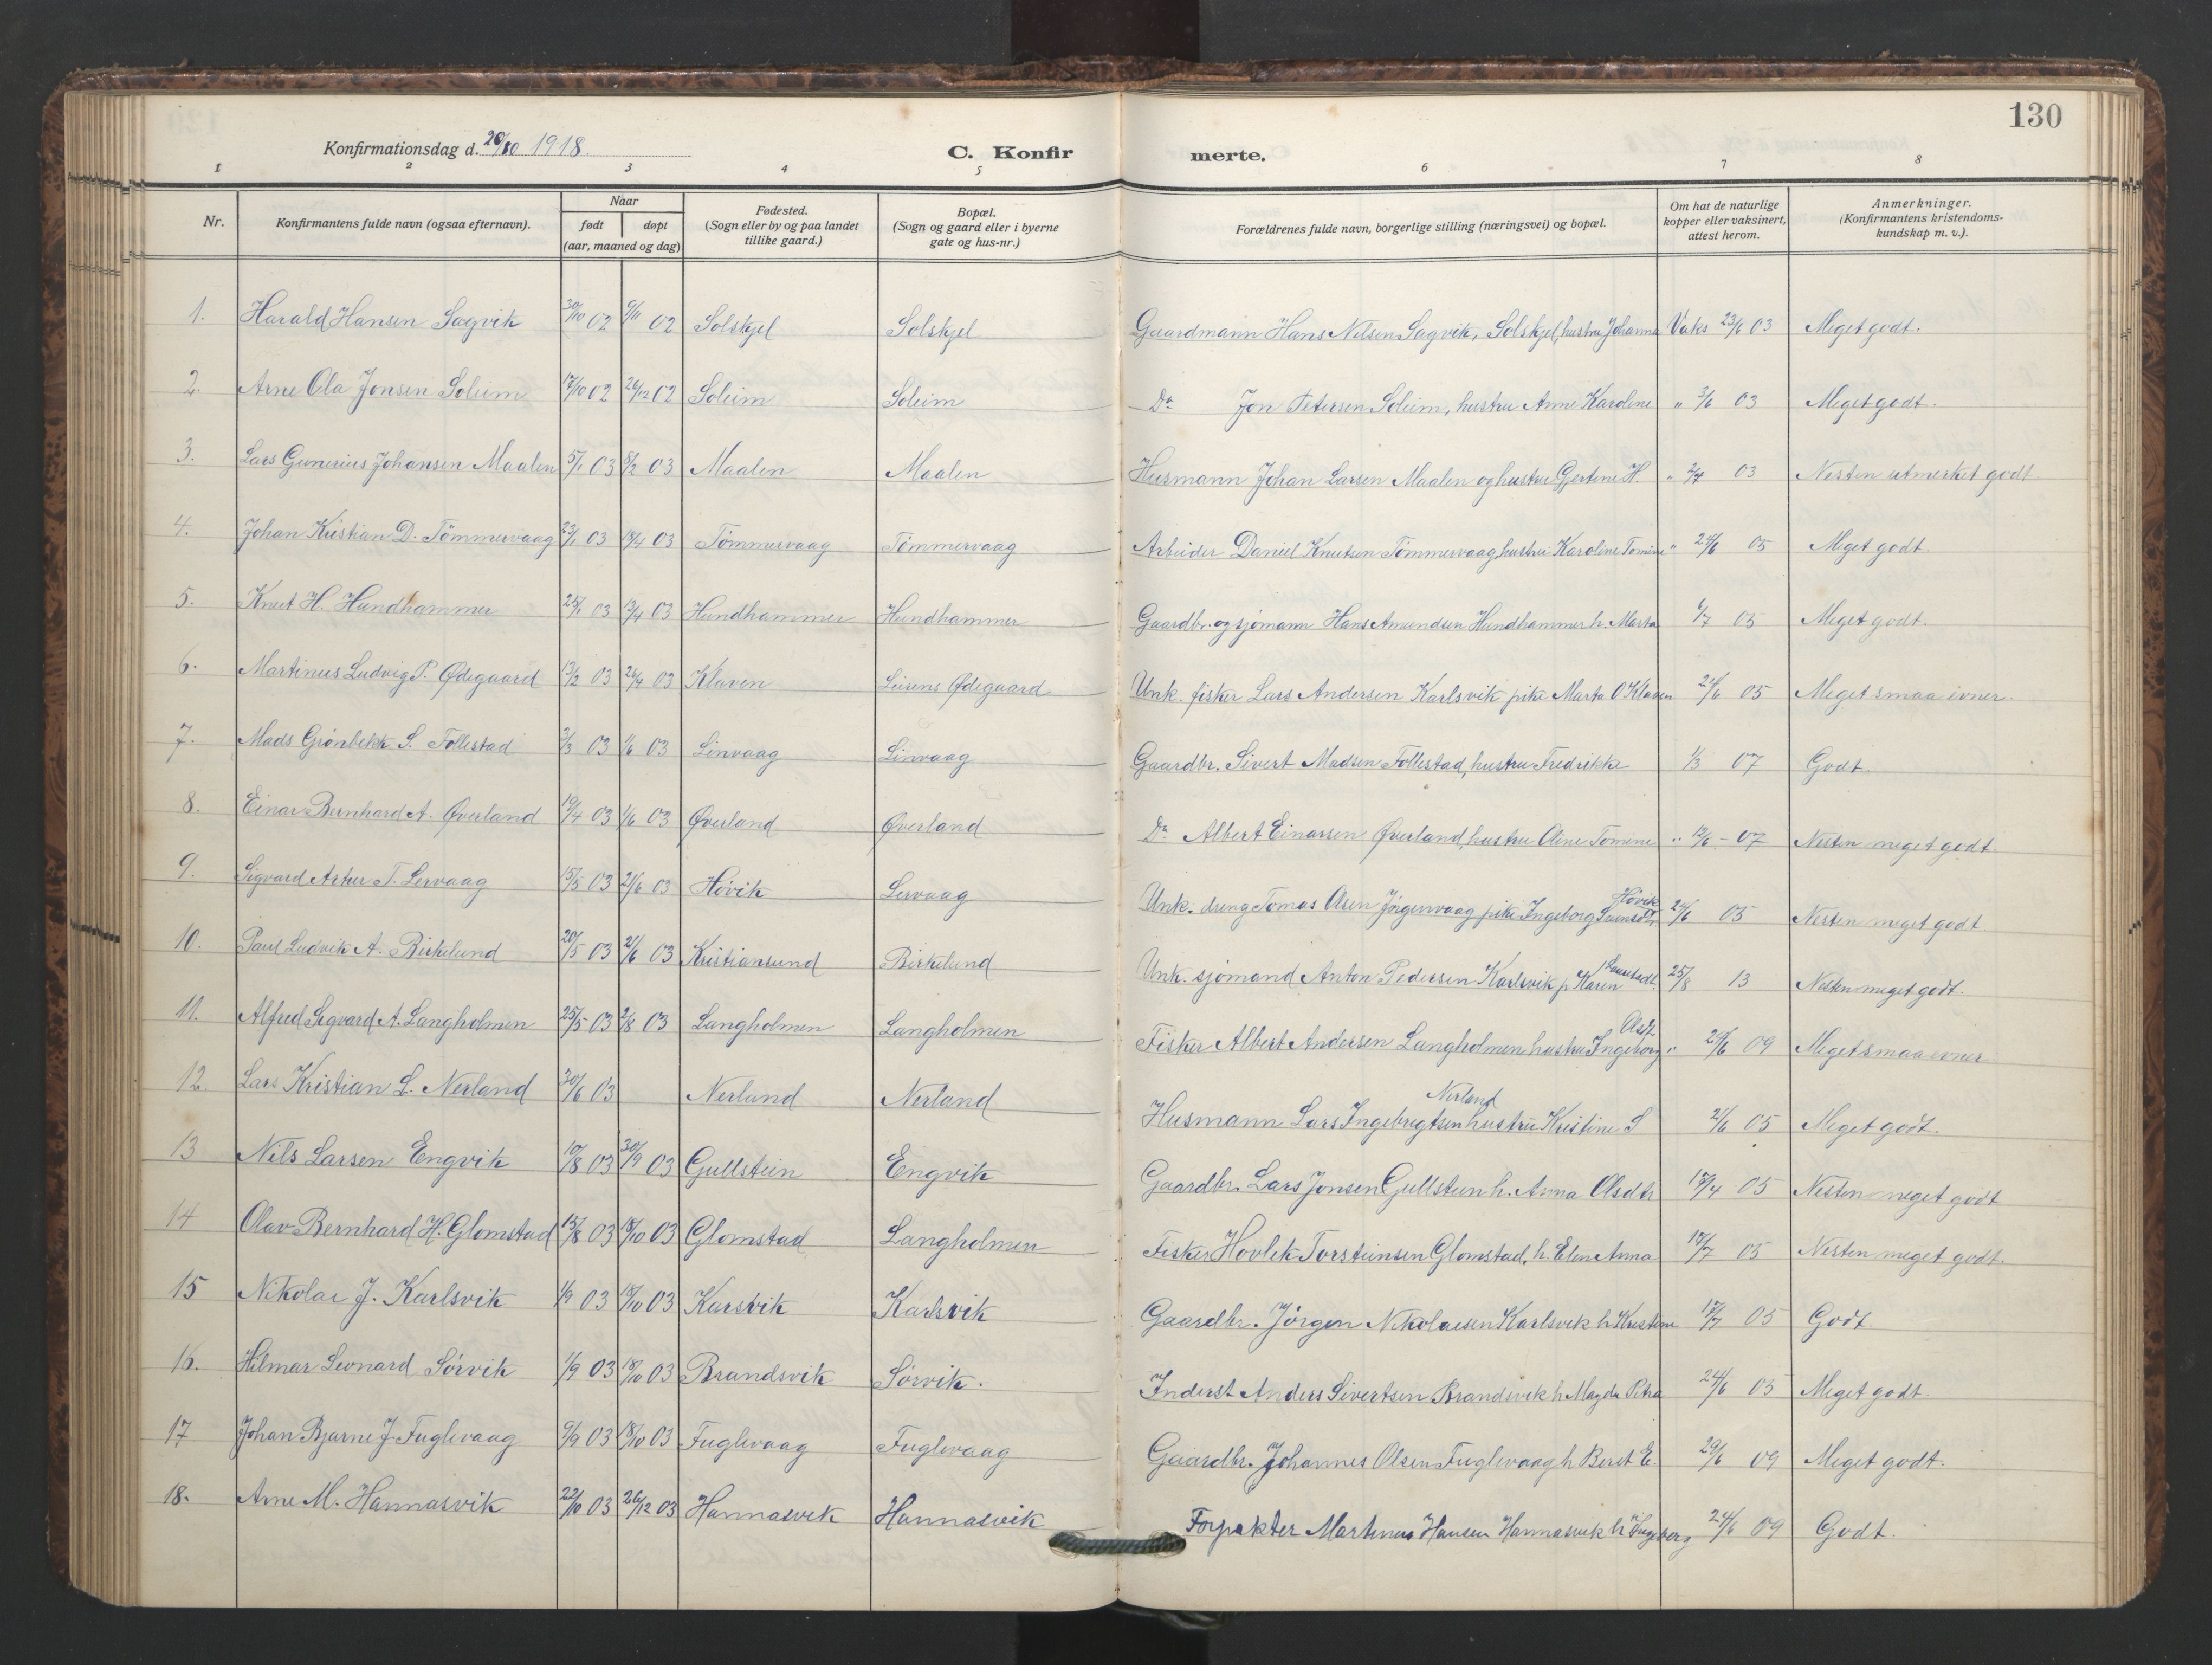 130
Konfirmationsdag d. 20/10 1918.
C. Konfirmerte.
1 2 3 4 5 6 7 8
Nr.
Konfirmantens fulde navn (ogsaa efternavn).
Naar
født døpt
(aar, maaned og dag)
Fødested.
(Sogn eller by og paa landet
tillike gaard.)
Bopæl.
(Sogn og gaard eller i byerne
gate og hus-nr.)
Forældrenes fulde navn, borgerlige stilling (næringsvei) og bopæl.
Om hat de naturlige
kopper eller vaksinert,
attest herom.
Anmerkninger.
(Konfirmantens kristendoms-
kundskap m. v.).
1. Harald Hansen Sagvik 30/10 02 9/11 02 Solskjel Solskjel Gaardmann Hans Nilsen Sagvik, Solskjel, hustru Johanna Vaks 23/6 03 Meget godt.
2. Arne Ola Jonsen Soleim 17/10 02 26/12 02 Soleim Soleim Do Jon Petersen Soleim, hustru Anne Karoline " 3/6 03 Meget godt.
3. Lars Gunerius Johansen Maalen 5/1 03 8/2 03 Maalen Maalen Husmann Johan Larsen Maalen og hustru Gjertine H. " 03 Nesten utmerket godt.
4. Johan Kristian D. Tömmervaag 23/1 03 18/4 03 Tömmervaag Tömmervaag Arbeider Daniel Knutsen Tömmervaag, hustru Karoline Tomine " 24/6 05 Meget godt.
5. Knut H. Hundhammer 25/1 03 13/4 03 Hundhammer Hundhammer Gaardbr. og sjömann Hans Amundsen Hundhammer h. Marta 6/7 05 Meget godt.
6. Martinus Ludvig P. Ødegaard 13/2 03 26/4 03 Klaven Leirens Ødegaard Unk. fisker Lars Andersen Karlsvik pike Marta O Klaven 24/6 05 Meget smaa evner.
7. Mads Grönbekk S. Follestad 2/3 03 1/6 03 Linvaag Linvaag Gaardbr. Sivert Madsen Follestad, hustru Fredrikke 1/3 07 Godt.
8. Einar Bernhard A. Øverland 19/4 03 1/6 03 Øverland Øverland Do Albert Einarsen Øverland, hustru Oline Tomine " 12/6 - 07 Nesten meget godt.
9. Sigvard Artur T. Lervaag 15/5 03 21/6 03 Hövik Lervaag Unk. dreng Tomas Olsen Jörgenvaag pike Ingeborg Hövik 24/6 05 Nesten meget godt
10. Paul Ludvik A. Birkelund 20/5 03 21/6 03 Kristiansund Birkelund Unk. sjömand Anton Pedersen Karlsvik p Karen 25/8 13 Nesten meget godt.
11. Alfred Sigvard A. Langholmen 25/5 03 2/8 03 Langholmen Langholmen Fisker Albert Andersen Langholmen hustru Ingeborg Olsdt. " 24/6 09 Meget smaa evner
12. Lars Kristian L. Nerland 30/6 03 Nerland Nerland Husmann Lars Ingebrigtsen Nerland hustru Kristine S 2/6 05 Meget godt.
13 Nils Larsen Engvik 10/8 03 30/9 03 Gullstein Engvik Gaardbr. Lars Jonsen Gullstein h. Anna Olsdtr 17/4 05 Nesten meget godt
14 Olav Bernhard H. Glomstad 15/8 03 18/10 03 Glomstad Langholmen Fisker Hovlek Torsteinsen Glomstad, h. Elen Anna 17/7 05 Nesten meget godt.
15 Nikolai J. Karlsvik 1/9 03 18/10 03 Karsvik Karlsvik Gaardbr. Jörgen Nikolaisen Karlsvik h Kristine 17/7 05 Godt.
16. Hilmar Leonard Sörvik 1/9 03 18/10 03 Brandsvik Sörvik. Inderst Anders Sivertsen Brandsvik h Magda Petra 24/6 05 Meget godt.
17 Johan Bjarne J Fuglevaag 9/9 03 18/10 03 Fuglevaag Fuglevaag Gaardbr. Johannes Olsen Fuglevaag h Beret E. 29/6 09 Meget godt.
18. Arne M. Hannasvik 22/10 03 26/12 03 Hannasvik Hannasvik Forpakter Martinus Hansen Hannasvik h Ingeborg 24/6 09 Godt.